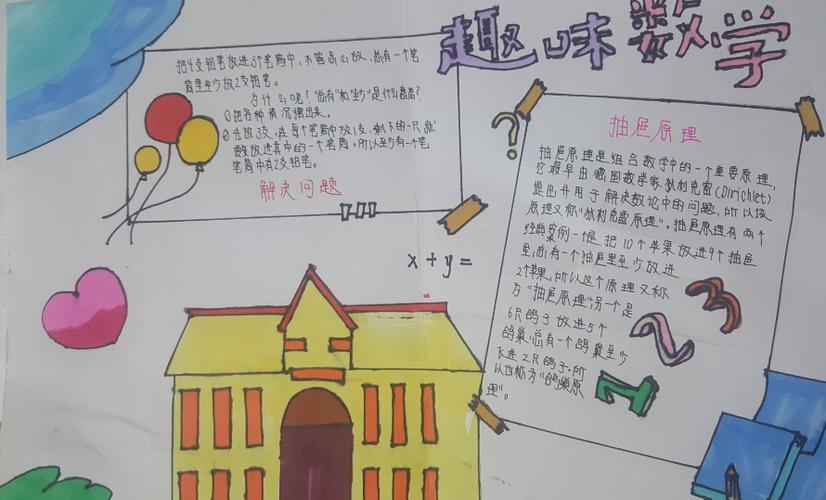 趣味数学
把4支铅笔放进3个笔筒中，不管怎么放，总有一个笔
筒里至少放2支铅笔。
为什么呢？“总有”和“至少”是什么意思？
①把各种情况摆出来。
②先放3支，在每个笔筒中放1支，剩下的一只就
要放进其中的一个笔筒。所以至少有一个笔
筒中有2支铅笔。
解决问题
x+y=
抽屉原理
抽屉原理是组合数学中的一个重要原理，
它最早由德国数学家狄利克雷(Dirichlet)
提出并用于解决数论中的问题，所以该
原理又称“狄利克雷原理”。抽屉原理有两个
经典案例一个是把10个苹果放进9个抽屉
里，总有一个抽屉里至少放进
2个苹果，所以这个原理又称
为“抽屉原理”；另一个是
6只鸽子放进5个
鸽巢，总有一个鸽巢至少
飞进2只鸽子。所
以也称为“鸽巢原
理”。
?
3
2
1